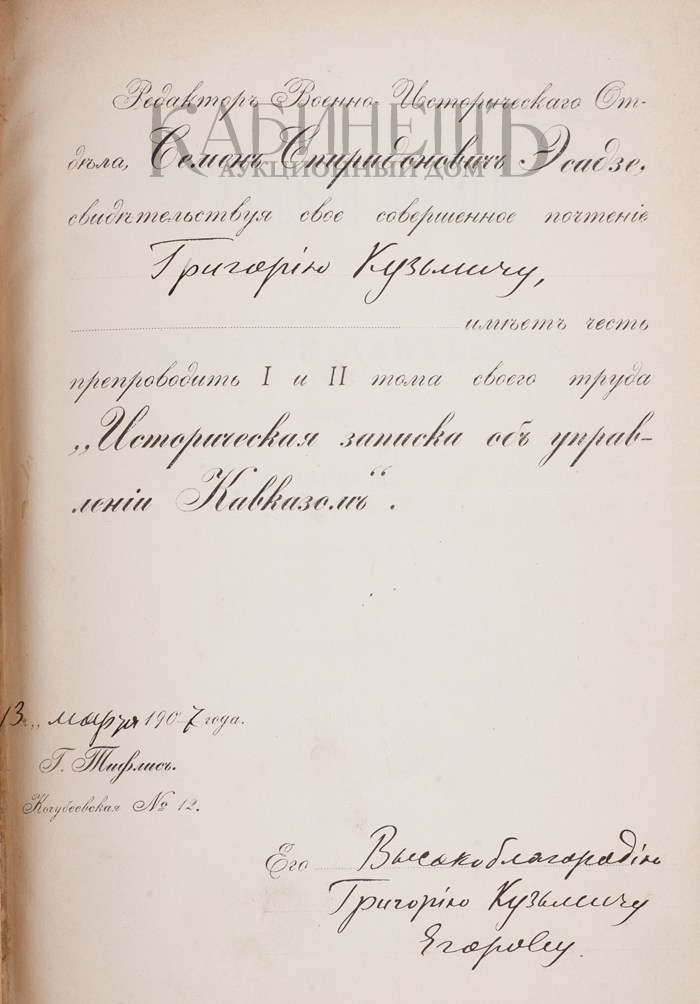 Редакторъ Военно-Историческаго От-
КАБИНЕТЪ
дѣла, Семенъ Спиридоновичъ Эсадзе,
АУКЦИОННЫЙ ДОМ
свидѣтельствуя свое совершенное почтеніе
Григорію Кузьмичу,
имѣетъ честь
препроводить I и II тома своего труда
„Историческая записка объ управ-
леніи Кавказомъ“.
13 „ марта 1907 года.
Г. Тифлисъ.
Кочубеевская № 12.
Его Высокоблагородію
Григорію Кузьмичу
Егорову.